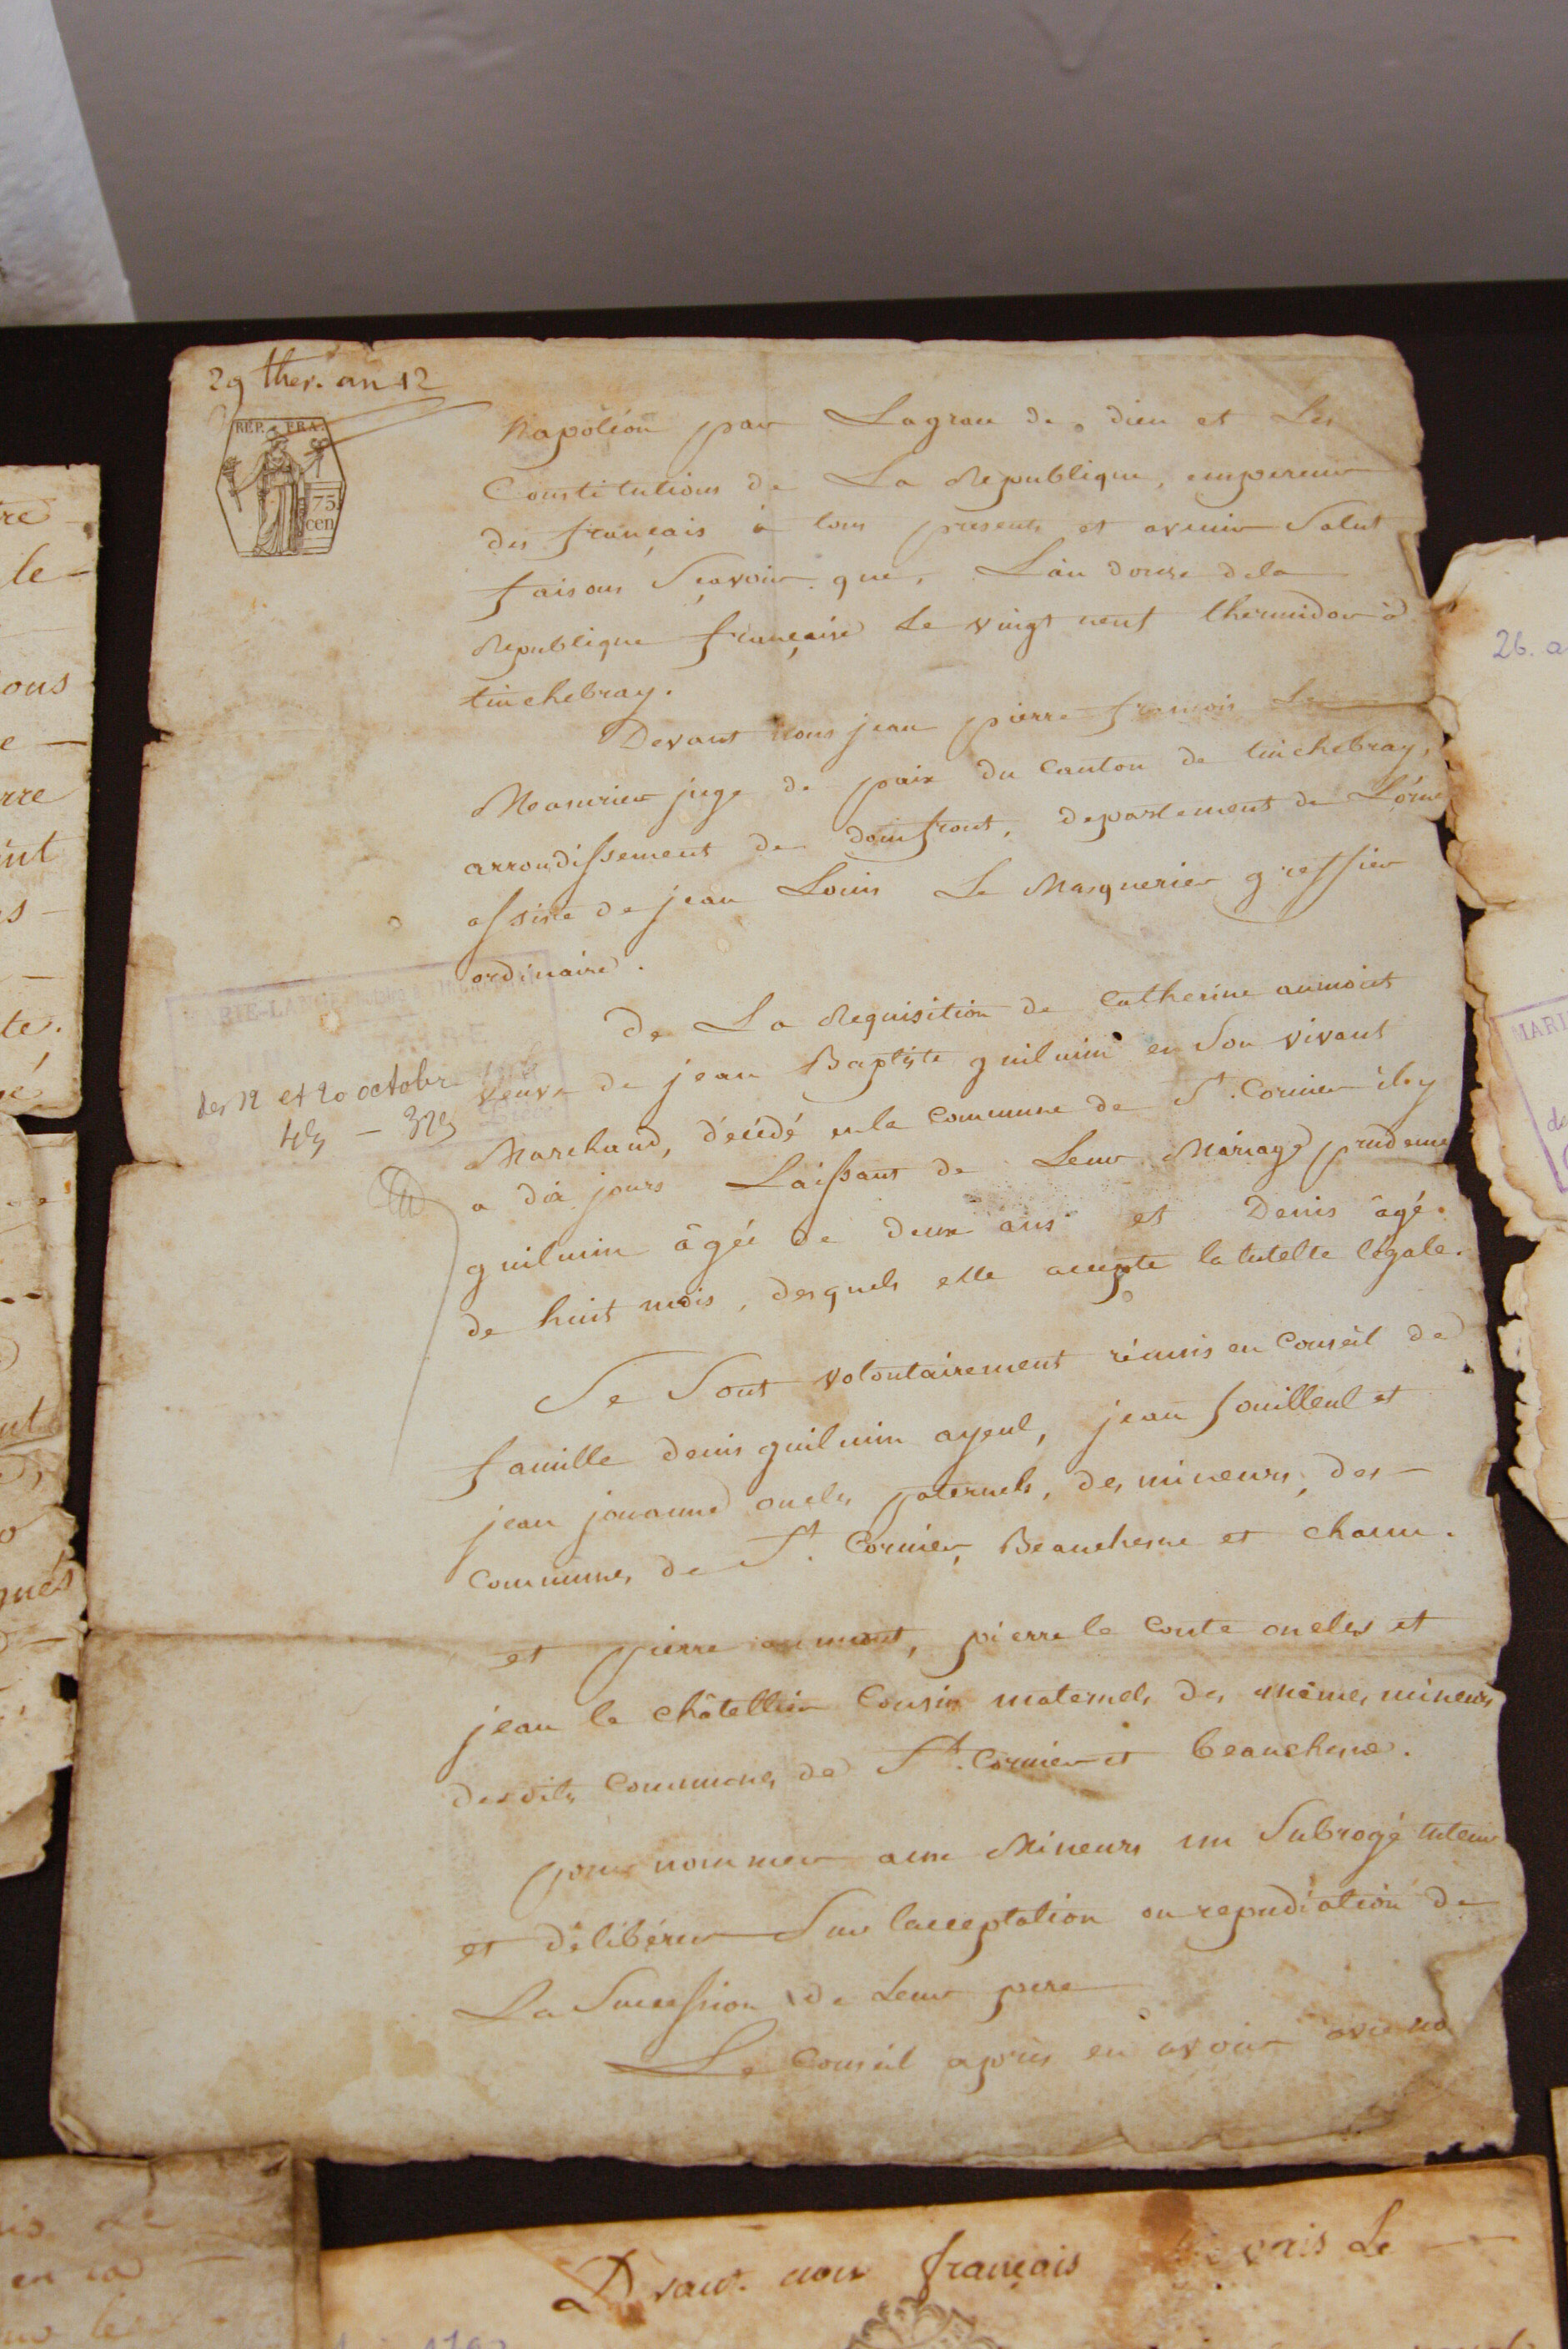 29 ther. an 12
REP. FRA.
75
cen
Napoléon par La grace de dieu et Les
Constitutions de La Republique, empereur
des français à tous presents et avenir Salut
faisons Sçavoir que, L'an douze dela
Republique française Le vingt neuf thermidor à
tinchebray.
Devant nous jean pierre francois Le
juge de paix du Canton de tinchebray,
arrondissement de domfront, departement de L'orne
assisté de jean Louis Le Masquerier greffier
ordinaire.
De La Requisition de Catherine aumont
veuve de jean Baptiste guilmin en Son vivant
Marchand, décédé en la Commune de St. Cornier il y
a dix jours Laissant de Leur Mariage
guilmin âgée de deux ans et Denis âgé
de huit mois, desquels elle accepte la tutelle légale.
Se Sont volontairement réunis en Conseil de
famille denis guilmin ayeul, jean fouilleul et
jean jouanne oncles paternels, des mineurs, des
Communes de St. Cornier, Beauchesne et
et pierre aumont, pierre le Conte oncles et
jean le châtellier Cousin maternels des mêmes mineurs
desdits Communes de St. Cornier et beauchesne.
pour nommer aux Mineurs un Subrogé tuteur
et délibérer Sur lacceptation ou repudiation de
La Succession de Leur pere
Le Conseil après en avoir
des 12 et 20 octobre
26. a
MARI
re
le
ous
e
rre
int
s
te.
é
ut
qués
français
Le
en la